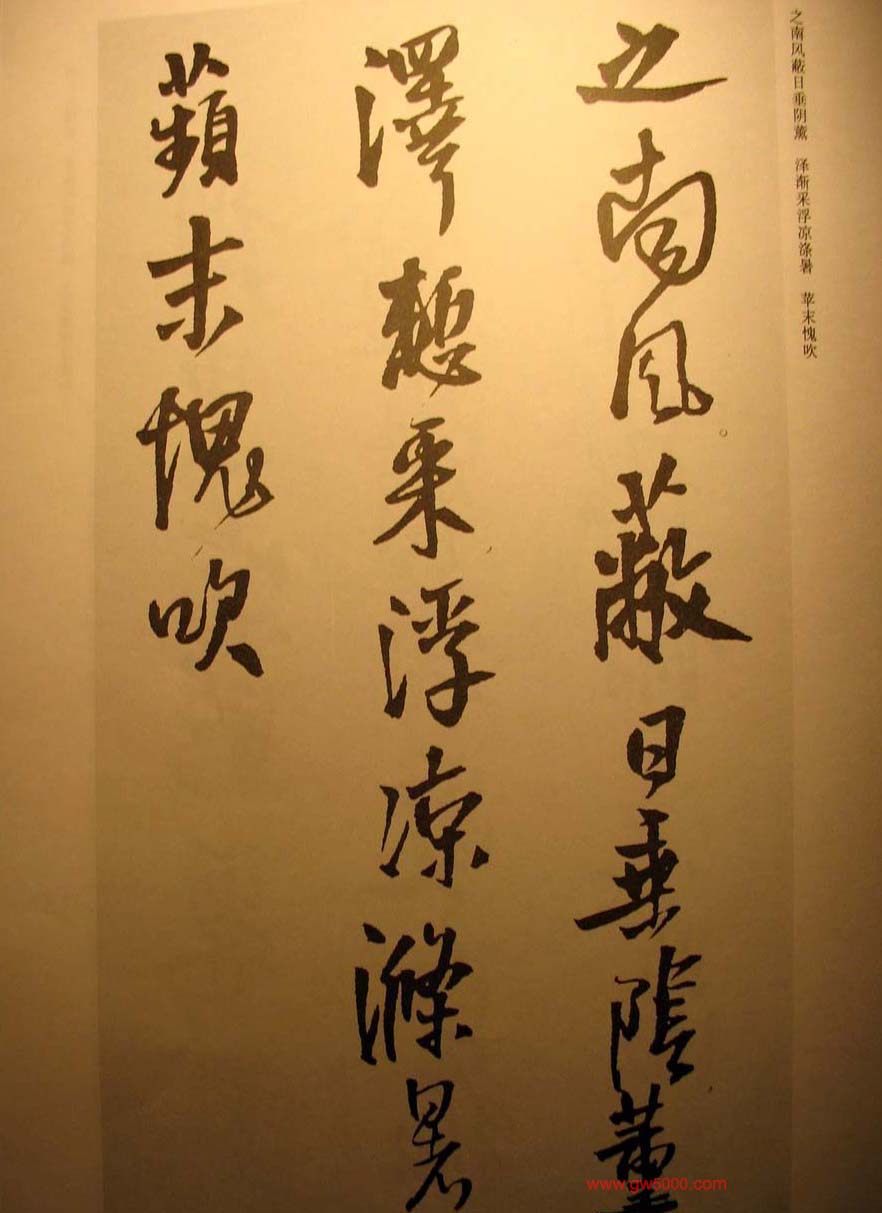 之南风蔽日垂阴薰　泽渐采浮凉涤暑　苹末愧吹
之南风蔽日垂陰薰
澤慙采浮凉滌暑
蘋末愧吹
www.gw5000.com